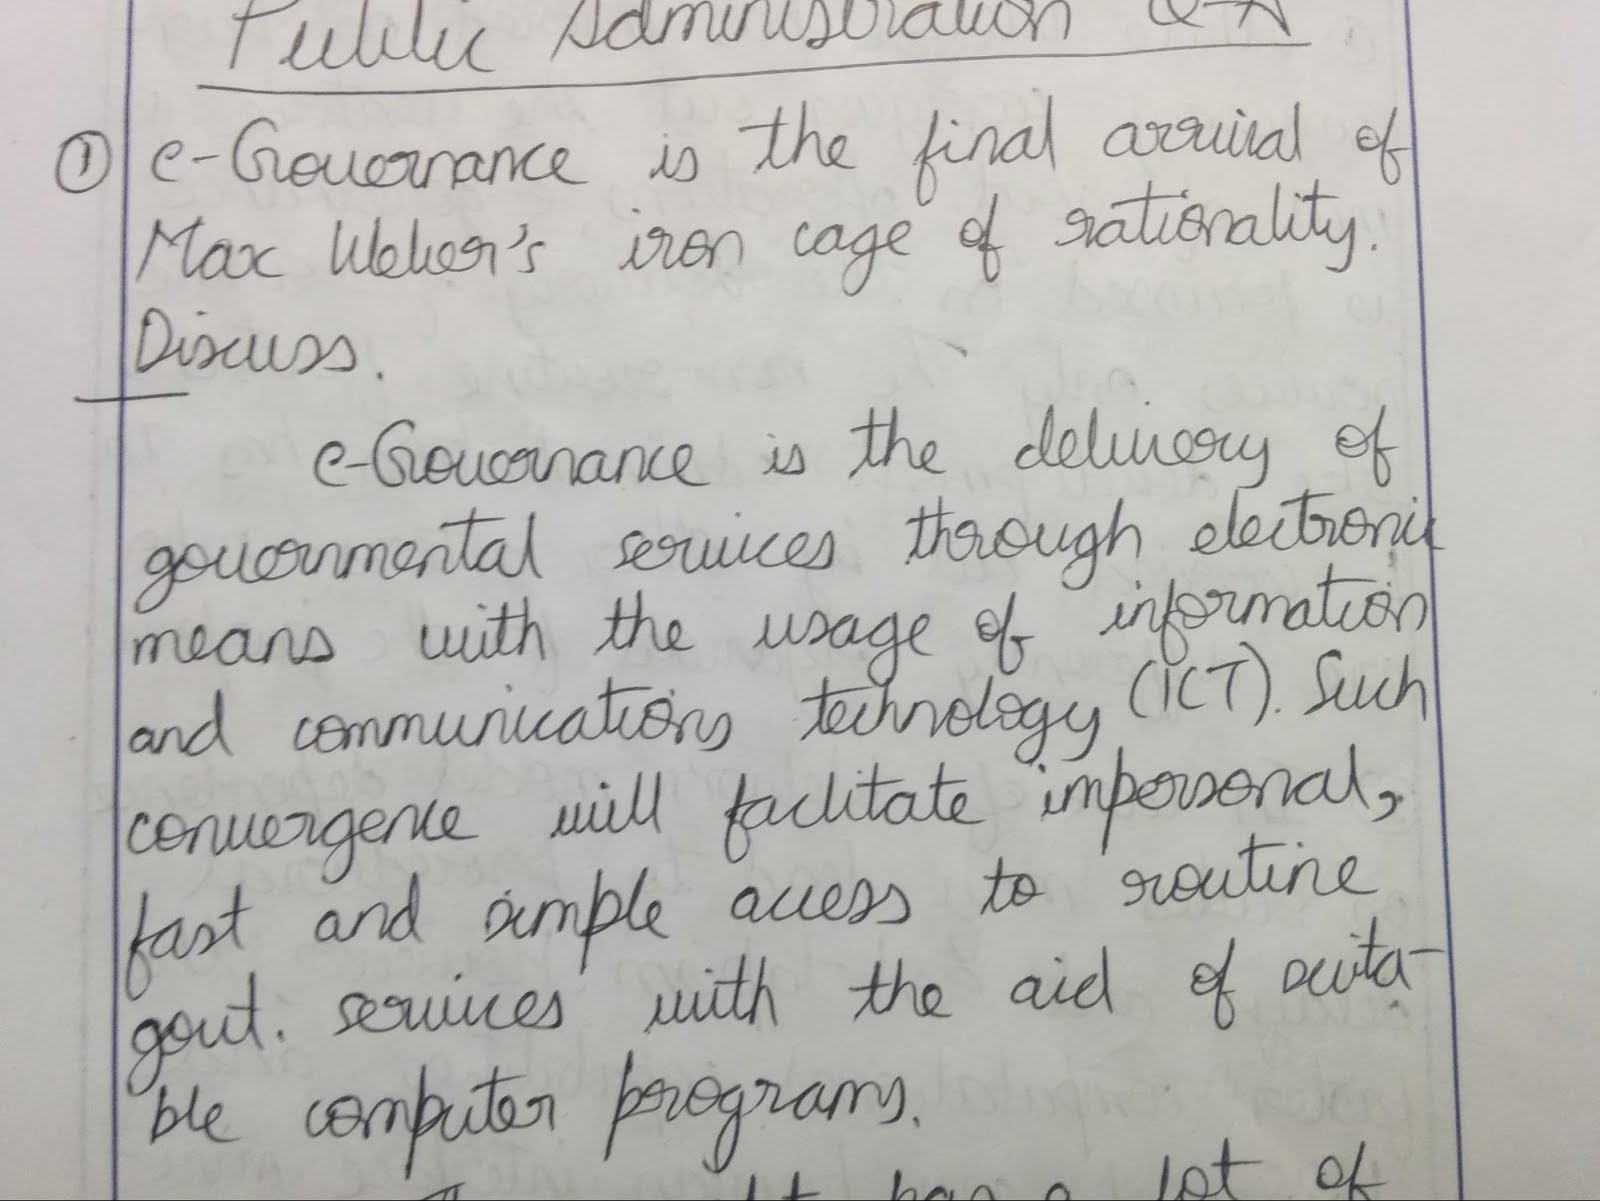 Public Administration Q-A
① e-Governance is the final arrival of
Max Weber's iron cage of rationality.
Discuss.
e-Governance is the delivery of
governmental services through electronic
means with the usage of information
and communications technology (ICT). Such
convergence will faclitate impersonal,
fast and simple access to routine
govt. services with the aid of suita-
ble computer programs.
has a lot of